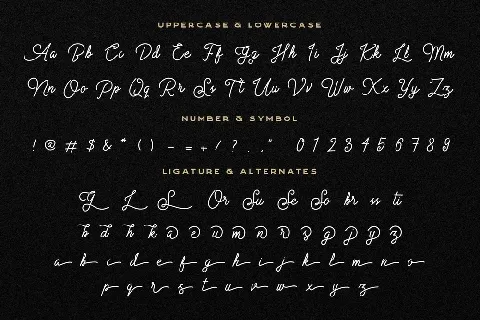 UPPERCASE & LOWERCASE
Aa Bb Cc Dd Ee Ff Gg Hh Ii Jj Kk Ll Mm
Nn Oo Pp Qq Rr Ss Tt Uu Vv Ww Xx Yy Zz
NUMBER & SYMBOL
! @ # $ & * ( ) - = + / ? . , " 0 1 2 3 4 5 6 7 8 9
LIGATURE & ALTERNATES
G L S Or Su Se So br ss ti
b d h k a e m a r s g p y z
a b c d e f g h i j k l m n o
p q r s t u v w x y z